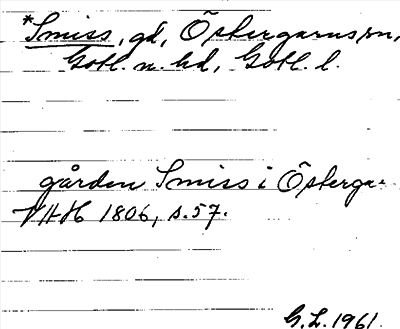 *Smiss, gd, Östergarns sn,
Gotl. n. hd, Gotl. l.
gården Smiss i Österga-
VHH 1806, s. 57.
G.L. 1961.